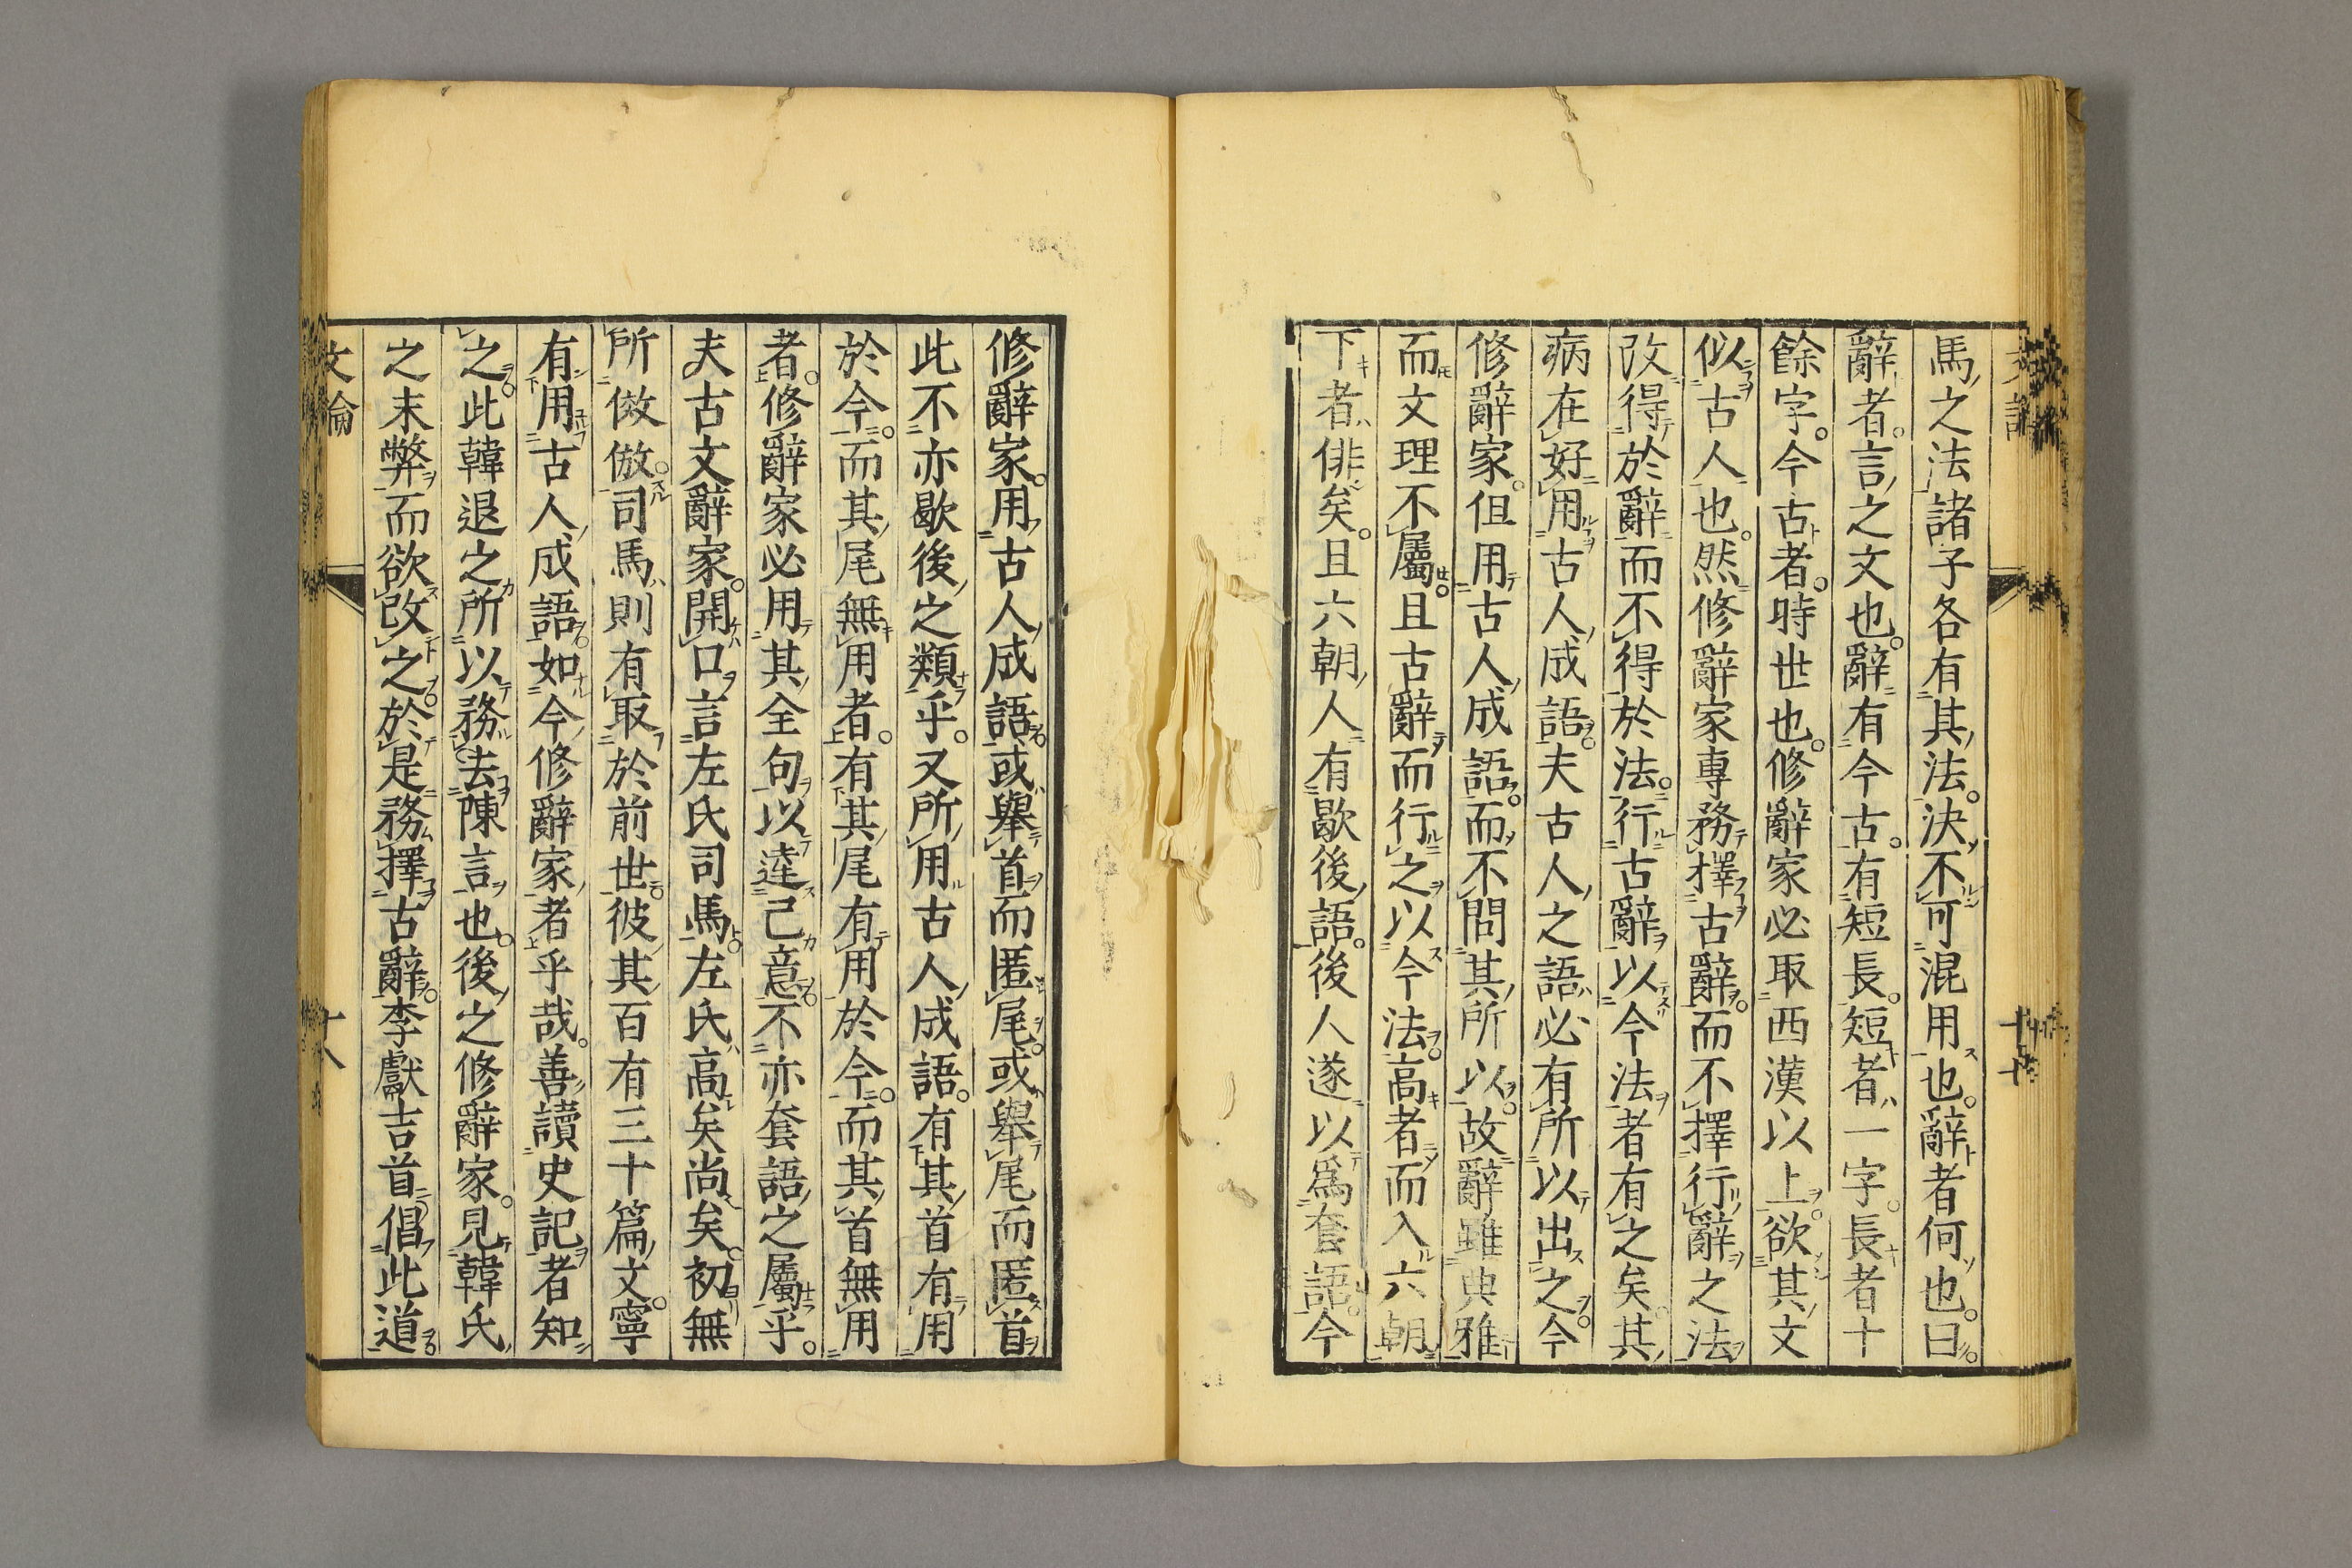 馬之法諸子各有其法決不可混用也辭者何也曰
辭者言之文也辭有今古有短長短者一字長者十
餘字今古者時世也修辭家必取西漢以上欲其文
似古人也然修辭家專務擇古辭而不擇行辭之法
改得於辭而不得於法行古辭以今法者有之矣其
病在好用古人成語夫古人之語必有所以出之今
修辭家但用古人成語而不問其所以故辭雖典雅
而文理不屬且古辭而行之以今法高者而入六朝
下者俳矣且六朝人有歇後語後人遂以爲套語今
修辭家用古人成語或舉首而匿尾或舉尾而匿首
此不亦歇後之類乎又所用古人成語有其首有用
於今而其尾無用者有其尾有用於今而其首無用
者修辭家必用其全句以達己意不亦套語之屬乎
夫古文辭家開口言左氏司馬左氏高矣尚矣初無
所倣倣司馬則有取於前世彼其百有三十篇文寧
有用古人成語如今修辭家者乎哉善讀史記者知
之此韓退之所以務去陳言也後之修辭家見韓氏
之末弊而欲改之於是務擇古辭李獻吉首倡此道
文論
十八